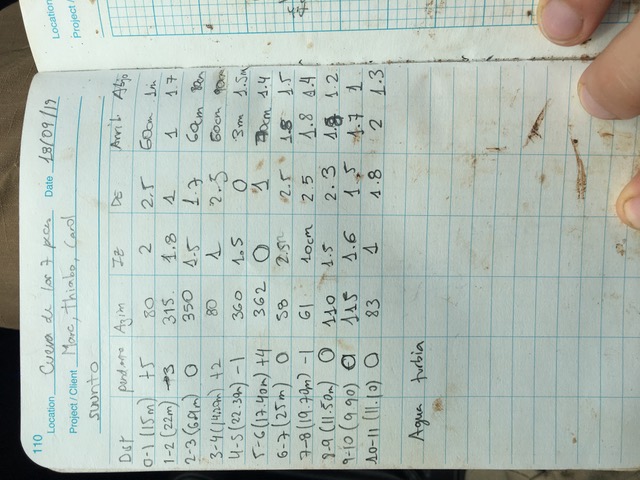 110
Location Cueva de los 7 peces Date 18/09/19 Location
Project / Client Marc, Thiabo, Carol Project /
suunto
Dist pendiente Azim IZ DE Arrib Abjo
0-1 (15m) +5 80 2 2.5 60cm 1m
1-2 (22m) -3 315. 1.8 1 1 1.7
2-3 0 350 1.5 1.7 60cm 80cm
3-4 +2 80 1 2.5 60cm 90cm
4-5 (22.30m) -1 360 1.5 0 3m 1.5m
5-6 (17.40m) +4 362 0 1 1.4
6-7 (25m) 0 58 2.5m 2.5 1.8 1.5
7-8 (19.70m) -1 61 10cm 2.5 1.8 1.4
8-9 (11.50m) 0 110 1.5 2.3 1.2
9-10 (9.90) 0 115 1.6 1.5 1.7 1
10-11 (11.10) 0 83 1 1.8 2 1.3
Agua turbia